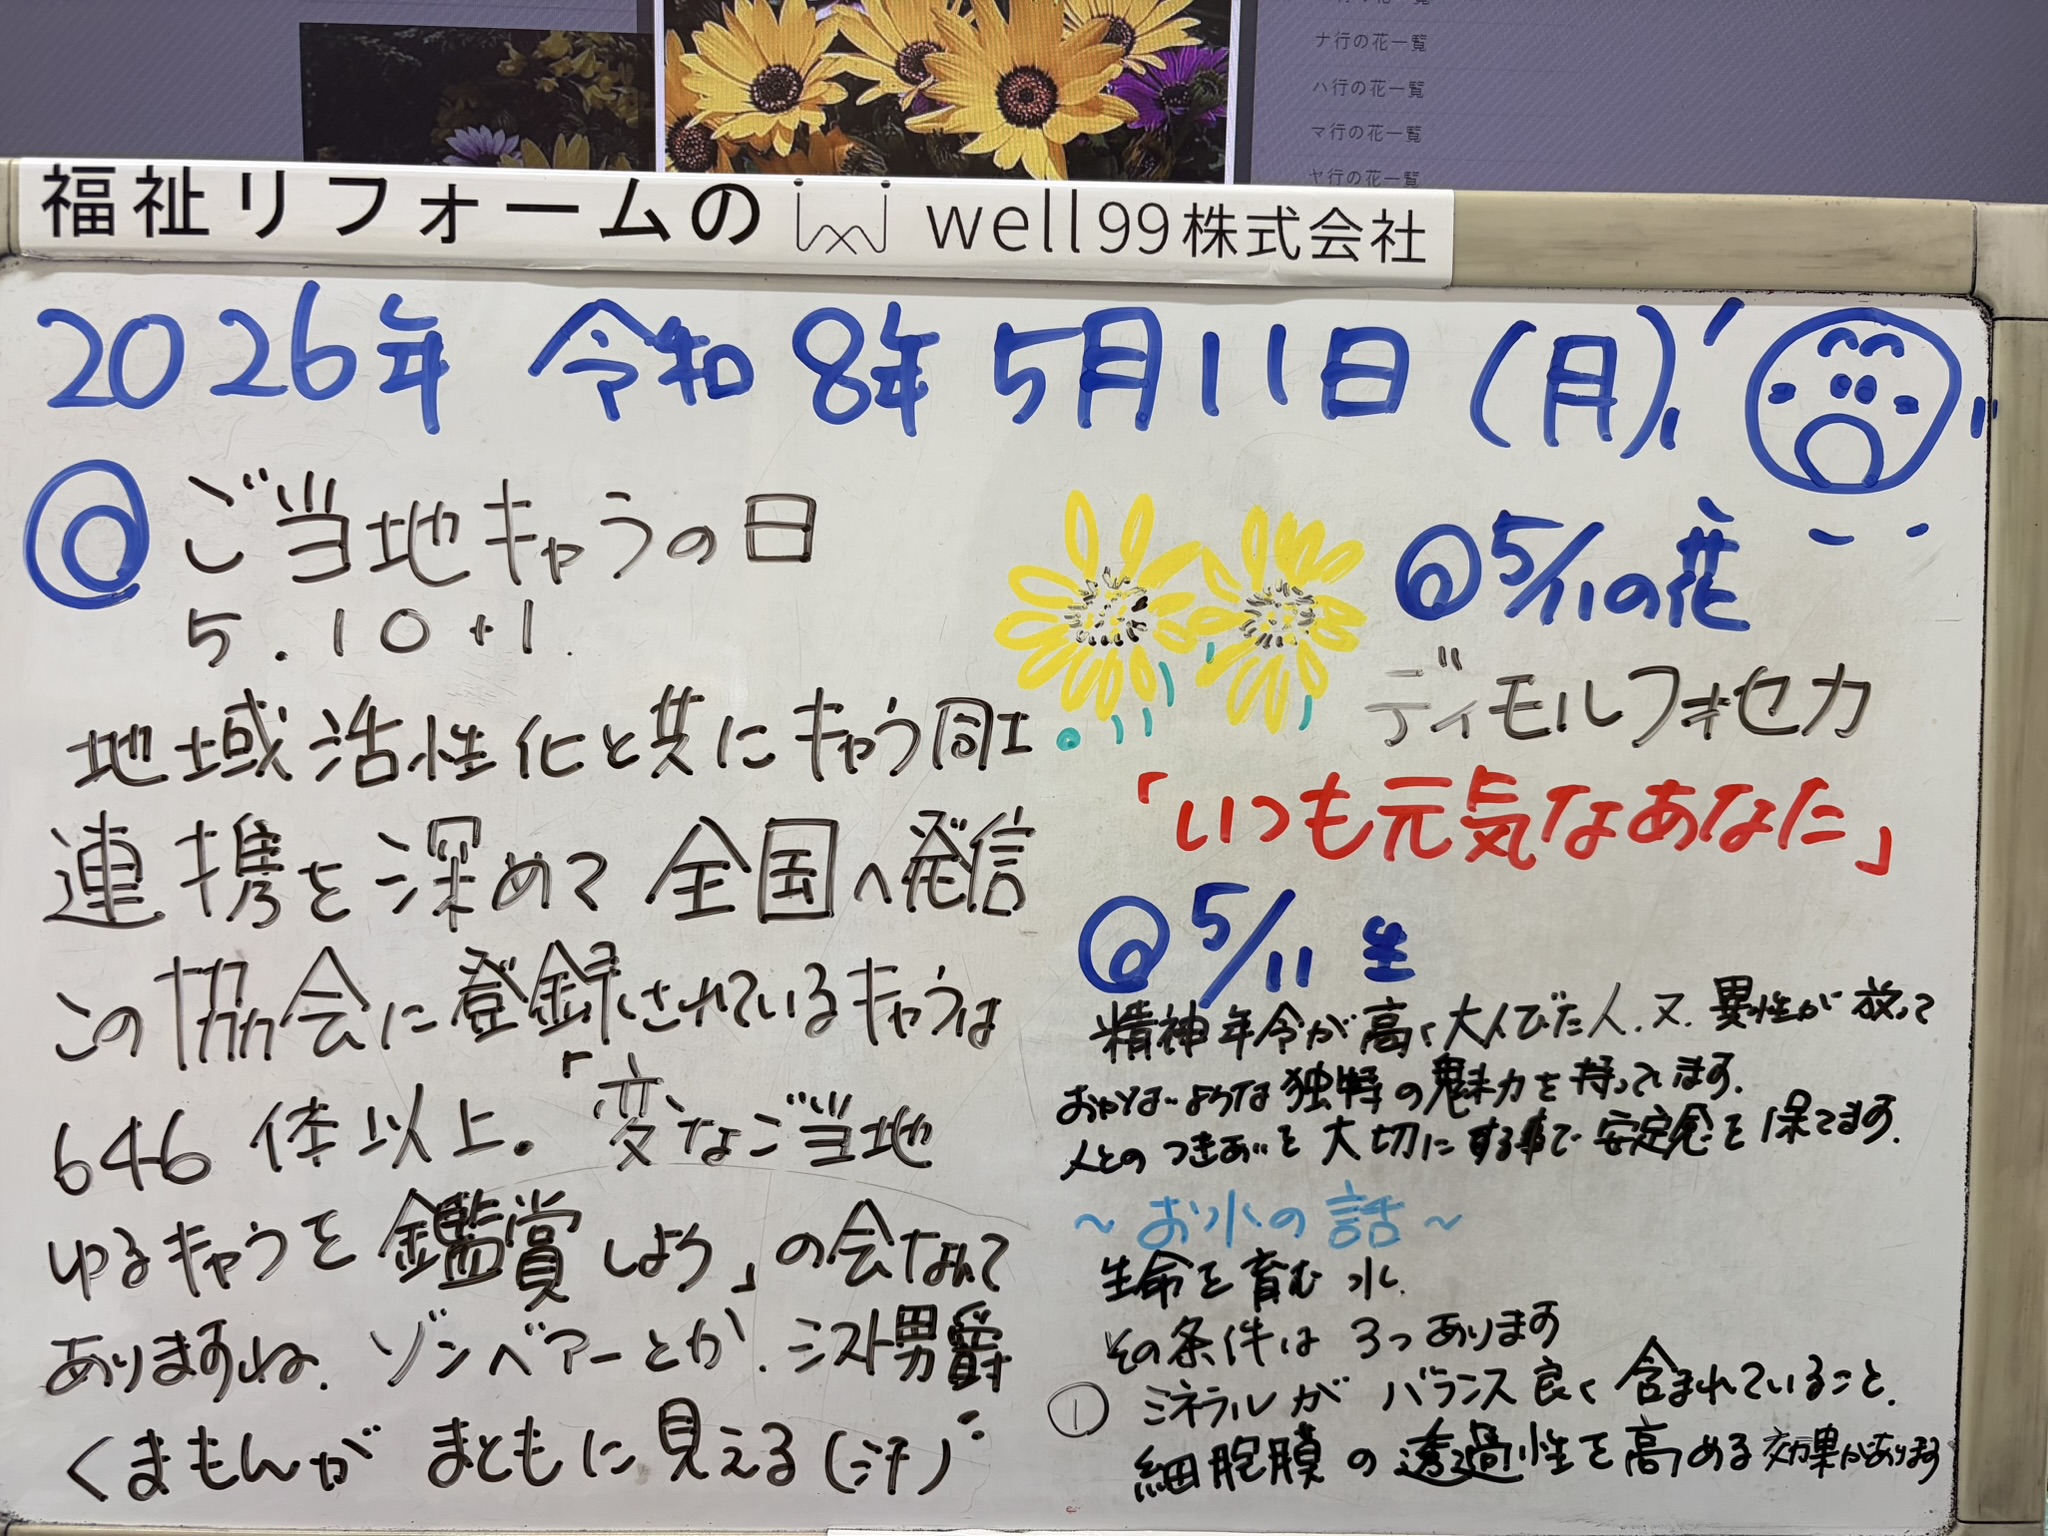 ナ行の花一覧
ハ行の花一覧
マ行の花一覧
ヤ行の花一覧
福祉リフォームの well99株式会社
2026年 令和8年 5月11日(月)
ご当地キャラの日
5.10+1.
地域活性化と共にキャラ同士
連携を深めて全国へ発信
この協会に登録されているキャラは
646体以上。「変なご当地
ゆるキャラを鑑賞しよう」の会なんて
ありますね. ゾンベアーとか.ミスト男爵
くまもんがまともに見える(汗)
5/11の花
ディモルフォセカ
「いつも元気なあなた」
5/11 生
精神年令が高く大人びた人.又.異性が放って
おかないような独特の魅力を持っています.
人とのつきあいを大切にする事で安定感を保てます.
～お水の話～
生命を育む水.
その条件は3つあります
① ミネラルがバランス良く含まれていること.
細胞膜の透過性を高める効果があります